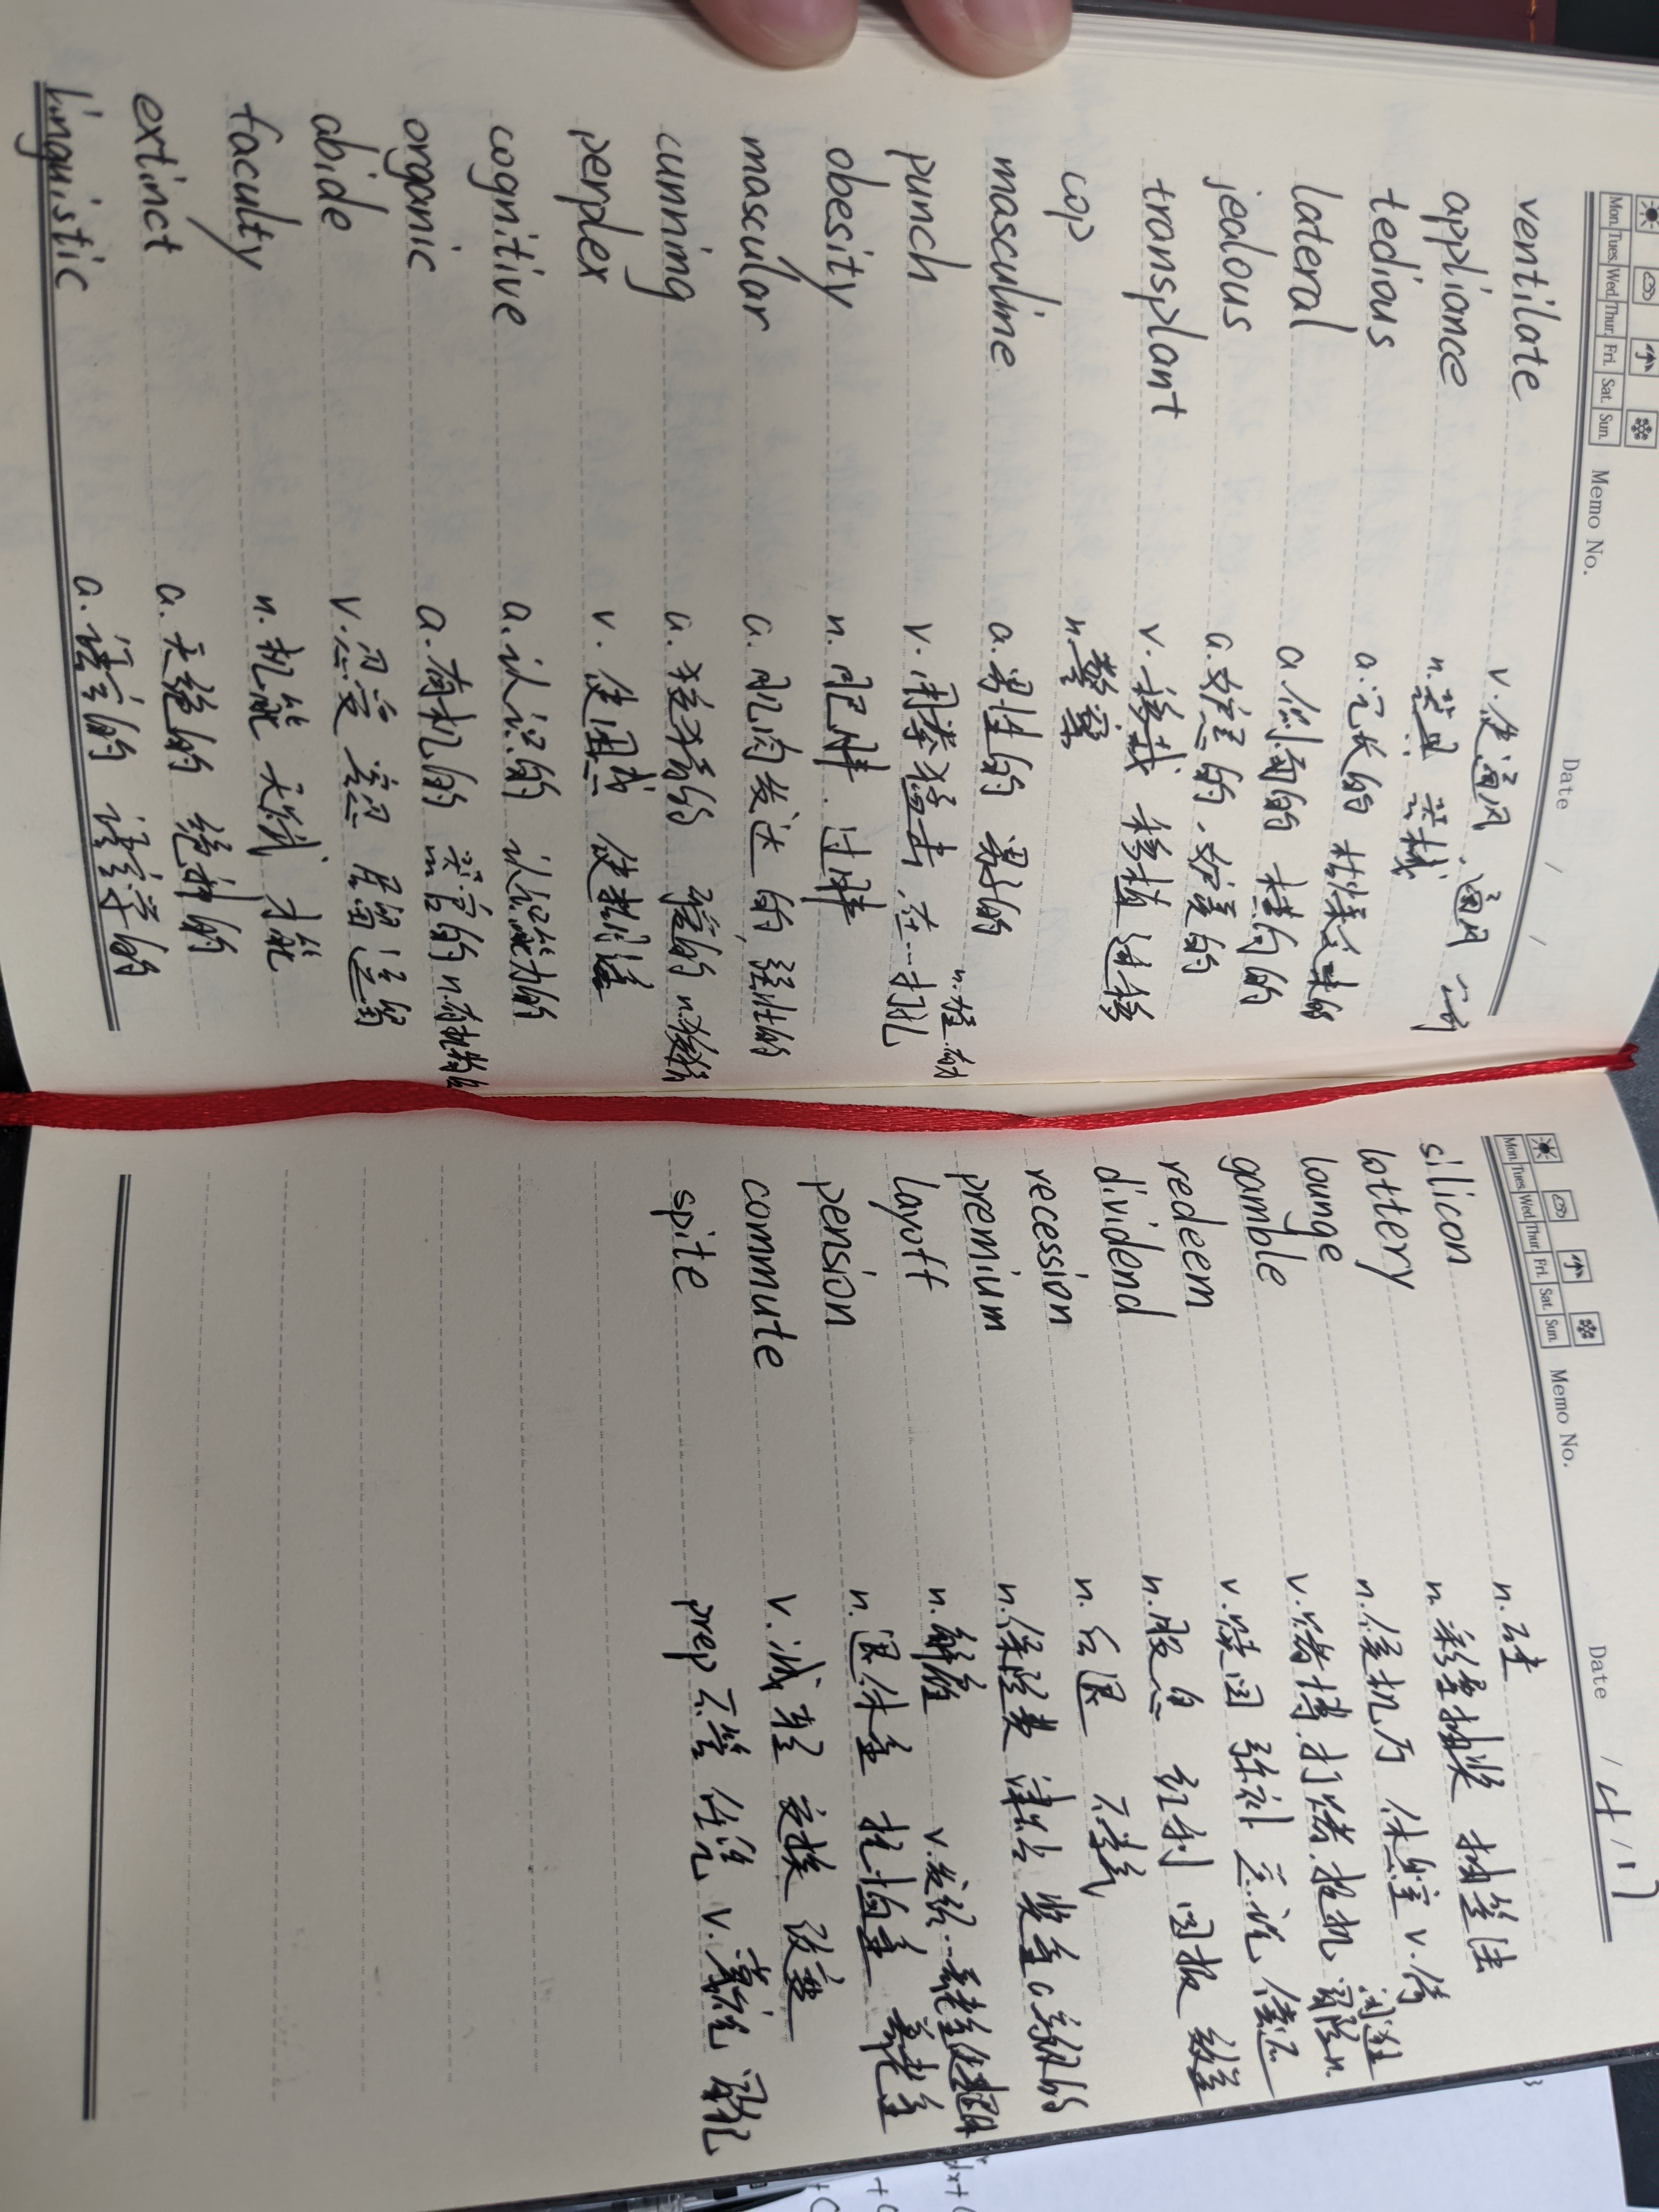 Mon. Tues. Wed. Thur. Fri. Sat. Sun. Memo No. Date / /
ventilate v. 使通风、通风
appliance n. 器具 器械
tedious a. 冗长的 枯燥乏味的
lateral a. 侧面的 横向的
jealous a. 妒忌的、妒羡的
transplant v. 移栽 移植 迁移
cop n. 警察
masculine a. 男性的 男子的
punch v. 用拳猛击、在…打孔
obesity n. 肥胖、过胖
mascular a. 肌肉发达的, 强壮的
cunning a. 狡猾的
perplex v. 使困惑 使费解
cognitive a. 认识的 认知能力的
organic a. 有机的 器官的 n. 有机物
abide v. 忍受 容忍 居留 逗留
faculty n. 机能 天赋 才能
extinct a. 灭绝的 绝种的
linguistic a. 语言的 语言学的
Mon. Tues. Wed. Thur. Fri. Sat. Sun. Memo No. Date / 4 / 17
silicon n. 硅
lottery n. 彩票抽奖 抽签法
lounge n. 候机厅 休息室 v. 闲逛
gamble v. 赌博、打赌、投机 冒险 n.
redeem v. 赎回 弥补
dividend n. 股息 红利 回报
recession n. 后退 不景气
premium n. 保险费 津贴 奖金 a. 高级的
layoff n. 解雇
pension n. 退休金 抚恤金 养老金 v. 发给…养老金
commute v. 减轻 交换 改变
spite prep 不管 任凭